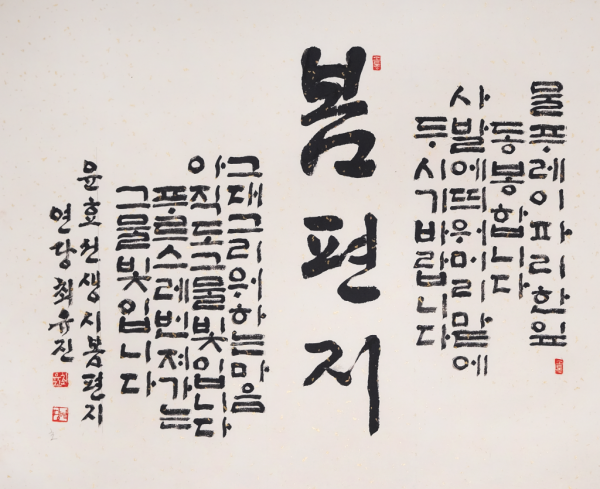 물푸레이파리한잎
동봉합니다
사발에띄워머리맡에
두시기바랍니다
봄편지
그대그리워하는마음
아직도그물빛입니다
푸르스레번져가는
그물빛입니다
윤효선생시봄편지
연당최윤진